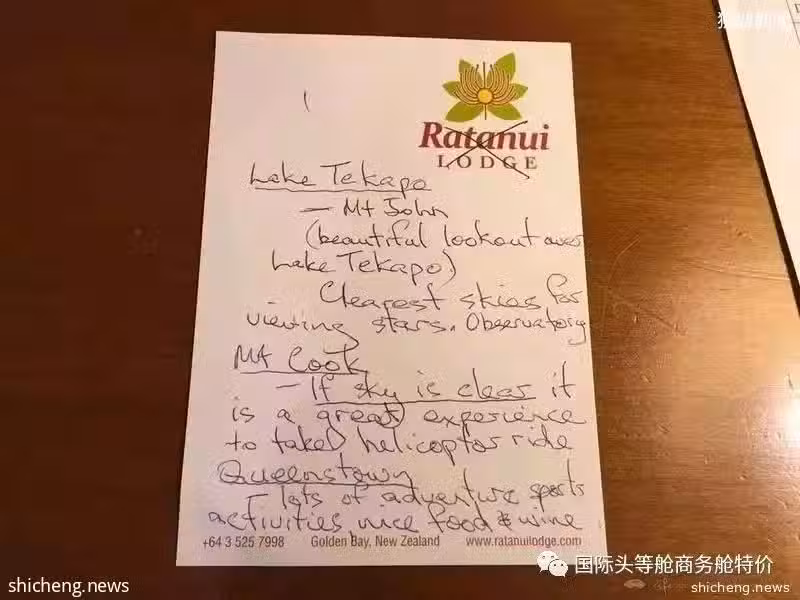 Ratanui
LODGE
Lake Tekapo
— Mt John
(beautiful lookout over
Lake Tekapo)
Clearest skies for
viewing stars. Observatory
Mt Cook
— If sky is clear it
is a great experience
to take helicoptor ride
Queenstown
- lots of adventure sports
activities, nice food & wine
+64 3 525 7998 Golden Bay, New Zealand www.ratanuilodge.com
国际头等舱商务舱特价
shicheng.news
shicheng.news